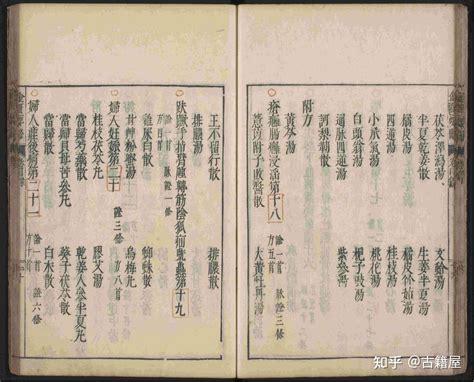 茯苓澤瀉湯 文蛤湯
半夏乾姜散 生姜半夏湯
橘皮湯 橘皮竹茹湯
四逆湯 桂枝湯
小承氣湯 桃花湯
白頭翁湯 梔子豉湯
通脉四逆湯 紫參湯
訶梨勒散
附方
黃芩湯
瘡癰腸癰浸淫第十八 論一首 脉證三條 方五首
薏苡附子敗醬散 大黃牡丹湯
王不留行散 排膿散
排膿湯
趺蹶手指臂腫轉筋陰狐疝蚘蟲第十九 論一首 脉證一條 方五首
雞屎白散 蜘蛛散
甘草粉蜜湯 烏梅丸
婦人妊娠第二十 證三條 方八首
桂枝茯苓丸 膠艾湯
當歸芍藥散 乾姜人參半夏丸
當歸貝母苦參丸 葵子茯苓散
當歸散 白朮散
婦人產後病第二十一 論一首 證六條
知乎 @古籍屋